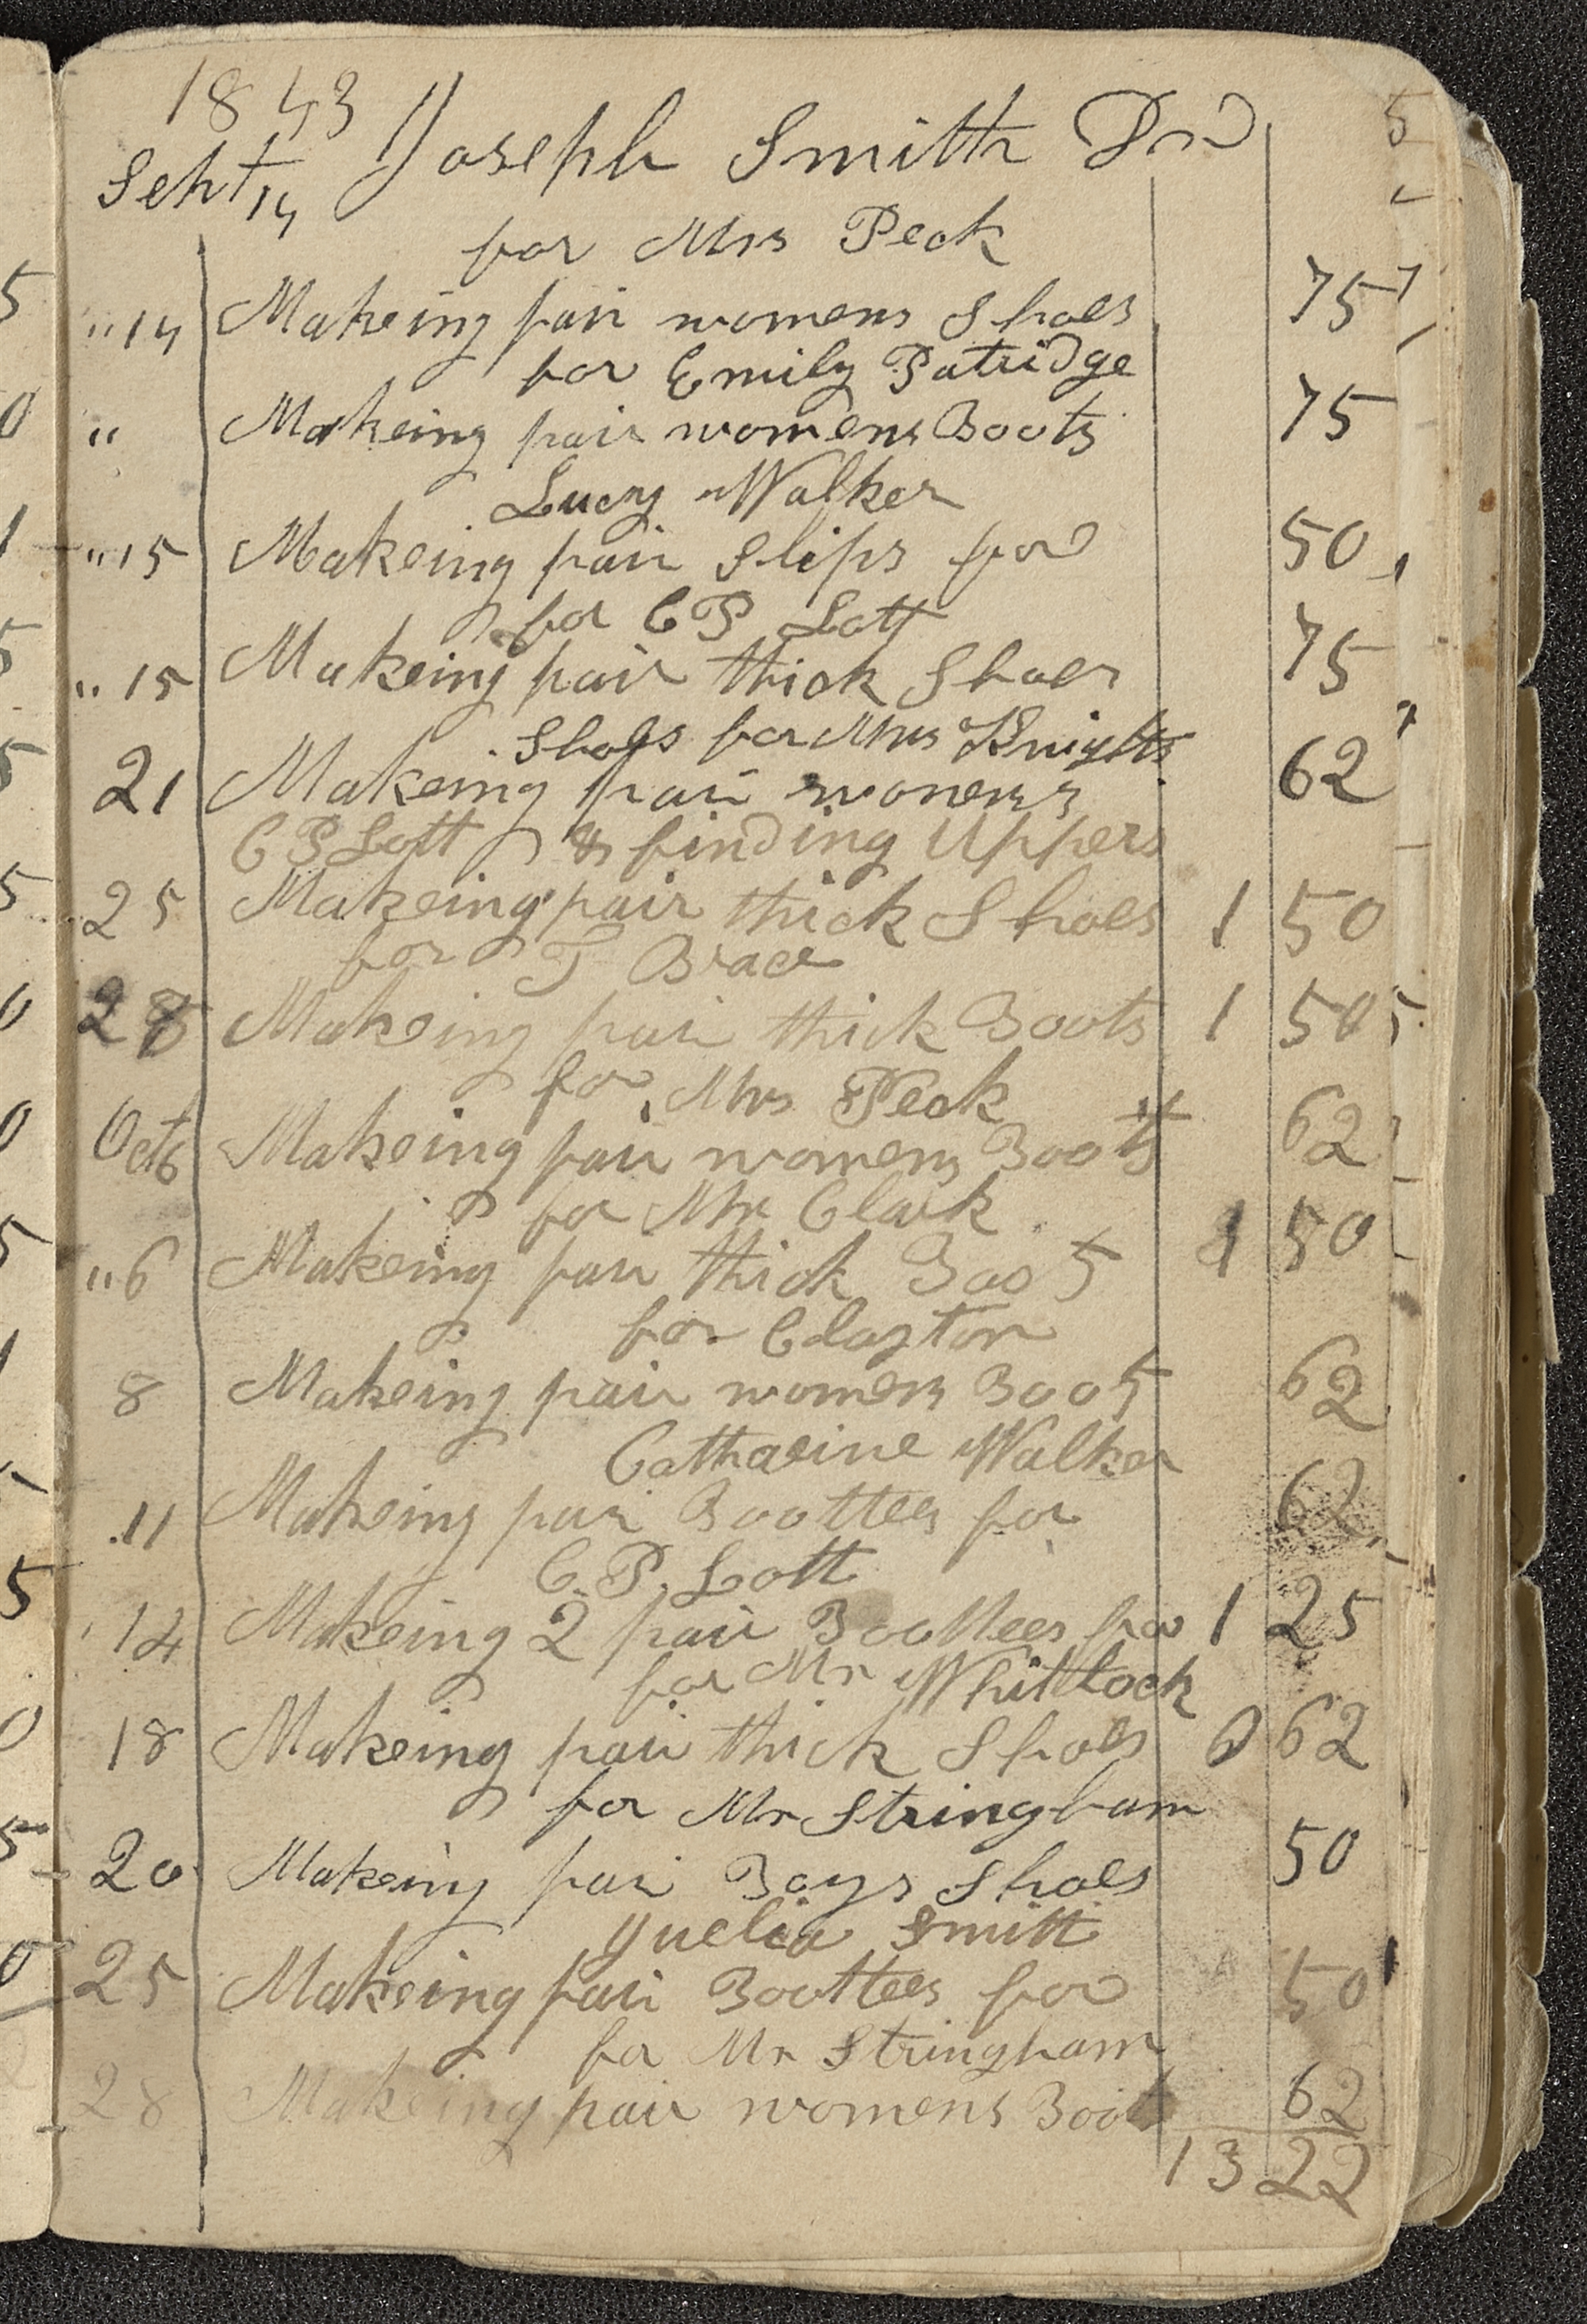 1843 Joseph Smith Dr
Sept 14
for Mrs Peck
"14 Makeing pair womens Shoes 75
for Emily Patridge
" Makeing pair womens Boots 75
Lucy Walker
"15 Makeing pair Slips for 50
for C P Lott
"15 Makeing pair thick Shoes 75
Shoes for Mrs Knights
21 Makeing pair womens 62
C P Lott & finding Uppers
25 Makeing pair thick Shoes 1 50
for T Brace
28 Makeing pair thick Boots 1 50
for Mrs Peck
Oct 6 Makeing pair womens Boots 62
for Mr Clark
"6 Makeing pair thick Boots 1 50
for Clayton
8 Makeing pair womens Boots 62
Catharine Walker
11 Makeing pair Boottees for 62
C. P. Lott
14 Makeing 2 pair Boottees for 1 25
for Mr Whittlock
18 Makeing pair thick Shoes 0 62
for Mr Stringham
20 Makeing pair Boys Shoes 50
Juelia Smith
25 Makeing pair Boottees for 50
for Mr Stringham
28 Makeing pair womens Boots 62
13 22